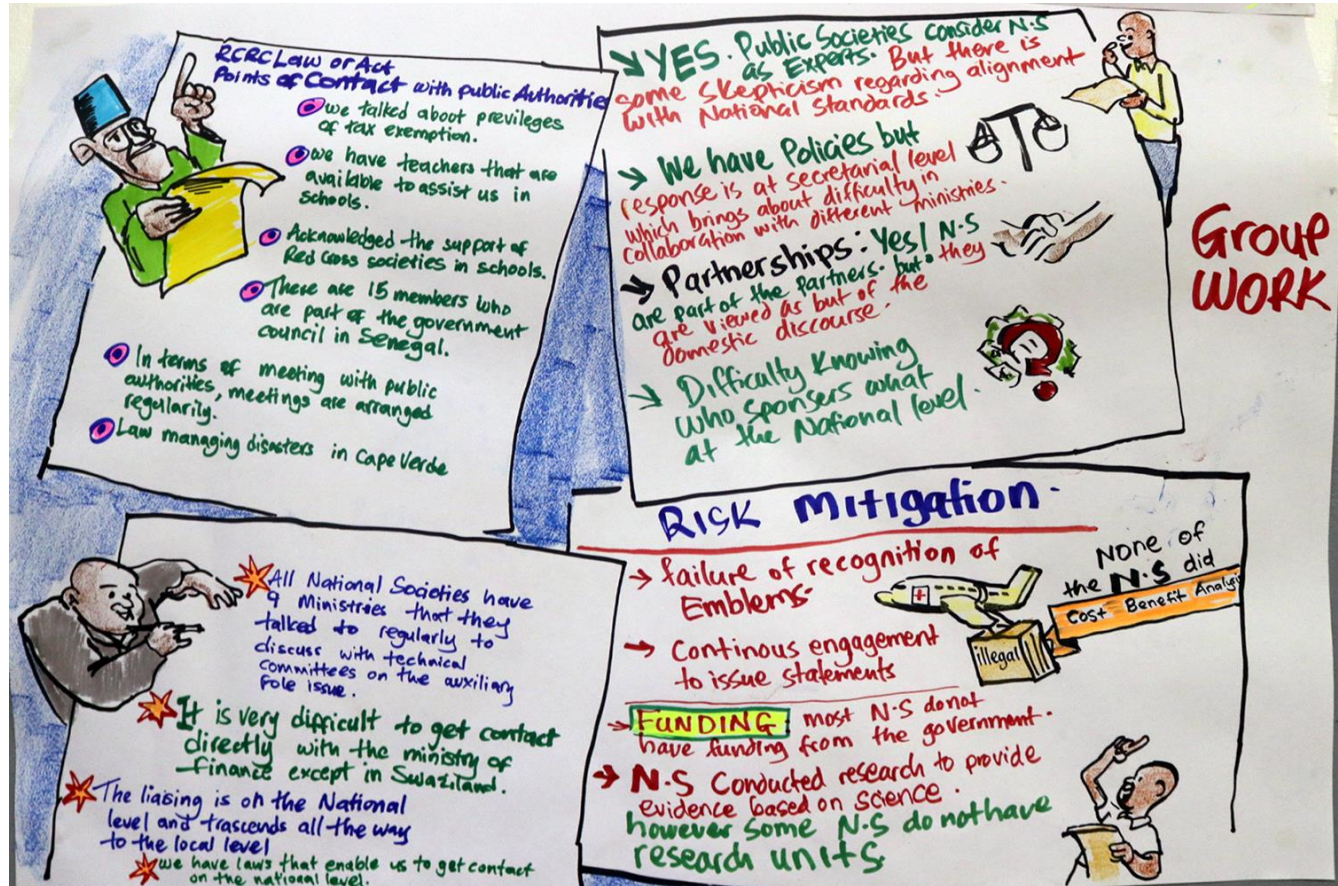 RCRC Law or Act
Points of Contact with public Authorities
we talked about previleges
of tax exemption.
we have teachers that are
available to assist us in
schools.
Acknowledged the support of
Red Cross societies in schools.
There are 15 members who
are part of the government
council in Senegal.
In terms of meeting with public
authorities, meetings are arranged
regularily.
Law managing disasters in Cape Verde
YES. Public Societies consider N.S
as Experts. But there is
some skepticism regarding alignment
with National standards.
We have Policies but
response is at secretarial level
which brings about difficulty in
collaboration with different ministries.
Partnerships: Yes! N.S
are part of the partners. but they
are viewed as but of the
domestic discourse.
Difficulty Knowing
who sponsers what
at the National level.
Group
WORK
All National Societies have
9 Ministries that they
talked to regularly to
discuss with technical
committees on the auxiliary
role issue.
It is very difficult to get contact
directly with the ministry of
finance except in Swaziland.
The liasing is on the National
level and trascends all the way
to the local level
we have laws that enable us to get contact
on the national level.
RISK Mitigation.
failure of recognition of
Emblems.
Continous engagement
to issue statements
FUNDING: most N.S do not
have funding from the government.
N.S Conducted research to provide
evidence based on science.
however some N.S do not have
research units
None of
the N.S did
Cost Benefit Analysis
illegal